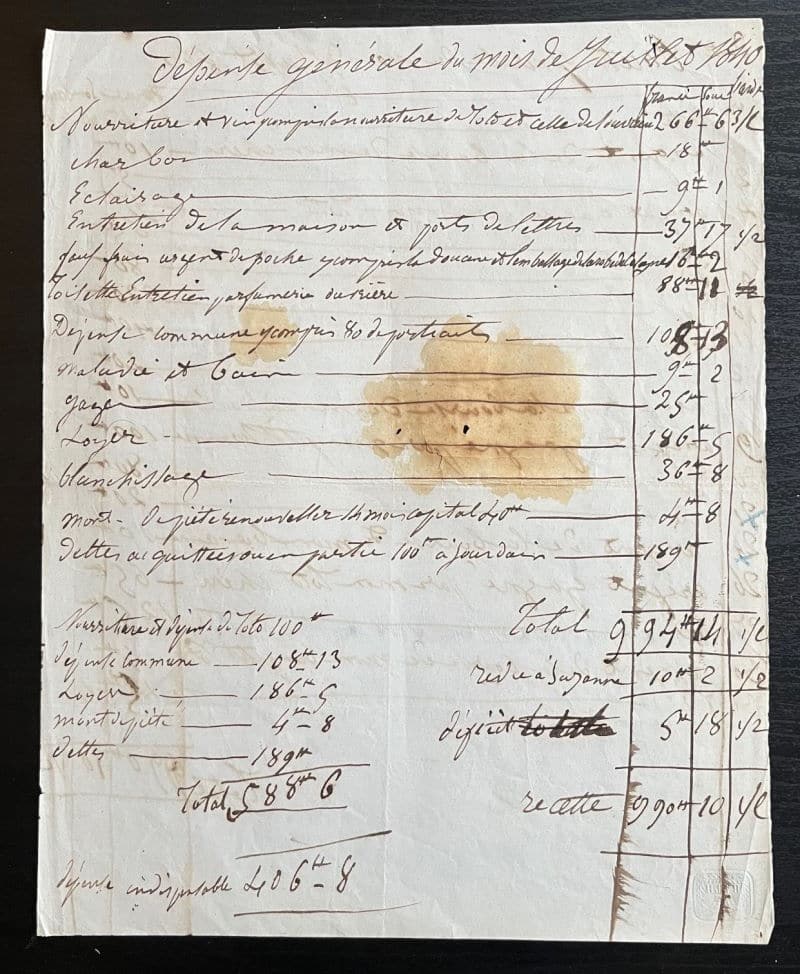 Dépense générale du mois de Juillet 1840
francs sous liards
Nourriture et vin compris la nourriture de Toto et celle de l'ouvrière 266 ₶ 6 3/l
charbon 18 ₶
Eclairage 9 ₶ 1
Entretien de la maison et ports de lettres 37 ₶ 17 1/2
faux frais argent de poche y compris la douane et l'emballage de 16 ₶ 2
Toilette Entretien parfumerie ouvrière 88 ₶ 11
Dépense commune y compris 80 de portraits 108 ₶ 13
Maladie et bain 9 ₶ 2
gages 25 ₶
Loyer 186 ₶ 5
blanchissage 36 ₶ 8
mont-de piété renouveller 14 mois capital 40 ₶ 4 ₶ 8
dettes acquittées ou en partie 100 ₶ à Jourdain 189 ₶
Total 994 ₶ 14 1/l
redue à Suzanne 10 ₶ 2 1/2
déficit 5 ₶ 18 1/2
recette 990 ₶ 10 1/l
Nourriture et dépense de Toto 100 ₶
dépense commune 108 ₶ 13
Loyer 186 ₶ 5
mont de piété 4 ₶ 8
dettes 189 ₶
Total 588 ₶ 6
dépense indispensable 406 ₶ 8